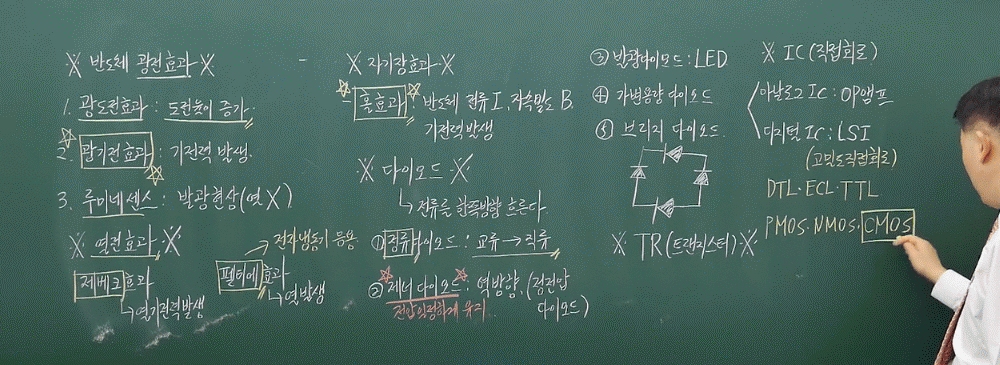 ※ 반도체 광전효과 ※
1. 광도전효과 : 도전율이 증가.
2. 광기전효과 : 기전력 발생.
3. 루미네센스 : 발광현상(열X)
※ 열전효과 ※
제베크효과
↳열기전력발생
→전자냉동기 등용
펠티에효과
↳열발생
※ 자기장효과 ※
- 홀효과 : 반도체 전류 I, 자속밀도 B
기전력발생
※ 다이오드 ※
↳전류를 한쪽방향 흐른다.
① 정류다이오드 : 교류→직류
② 제너 다이오드 : 역방향. (정전압
다이오드)
전압일정하게 유지
③ 발광다이오드 : LED
④ 가변용량 다이오드
⑤ 브리지 다이오드
※ TR(트랜지스터) ※
※ IC (직접회로)
아날로그 IC : OP앰프
디지털 IC : LSI
(고밀도직접회로)
DTL·ECL·TTL
PMOS·NMOS·CMOS